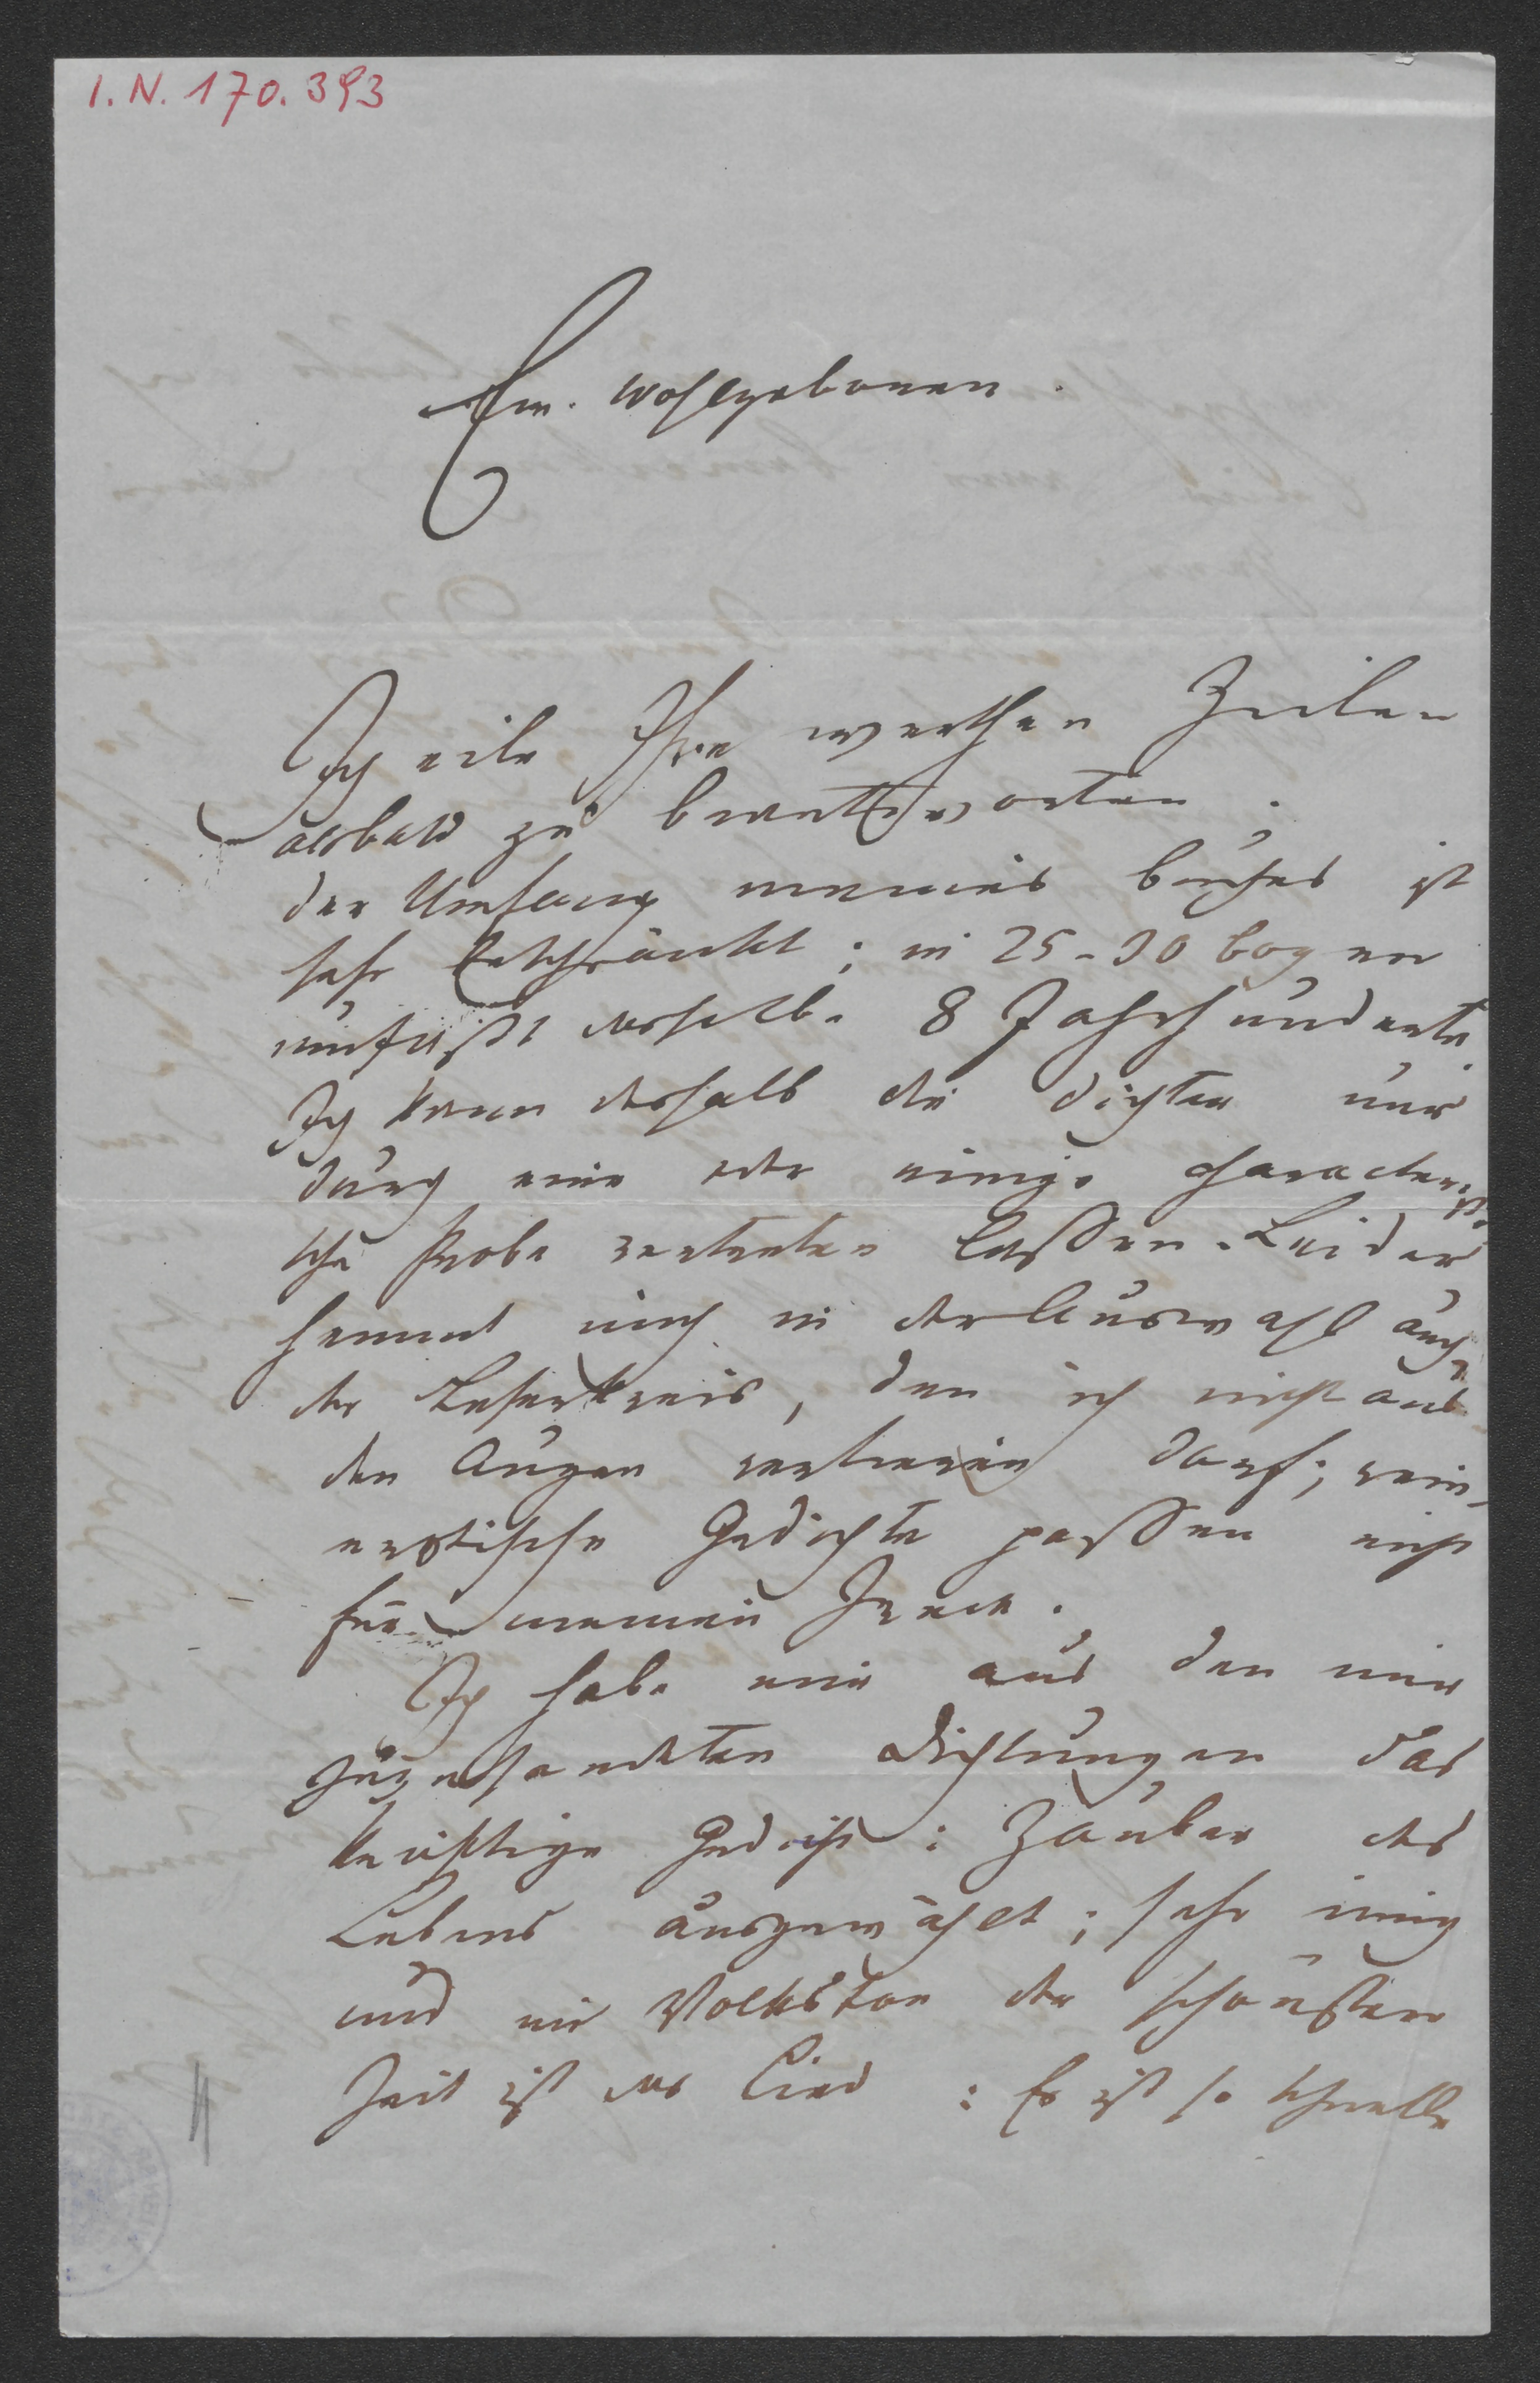 I. N. 170.393
Ew. Wohlgeboren.
Ich eile Ihre werthen Zeilen
alsbald zu beantworten.
der Umfang meines buches ist
sehr beschränkt; in 25-30 bogen
umfaßt dasselbe 8 Jahrhunderte.
Ich kann deshalb die dichter nur
durch eine oder einige characteristi
sche Probe vertreten laßen. Leider
hemmt mich in der Auswahl auch
der Leserkreis, den ich nicht aus
den Augen verlieren darf; rein
erotische Gedichte paßen nicht
für meinen Zweck.
Ich habe mir aus den mir
zugesandten Dichtungen das
kräftige Gedicht: Zauber des
Lebens ausgewählt; sehr innig
und im Volkston der schönsten
Zeit ist das Lied: Es ist so schnelle